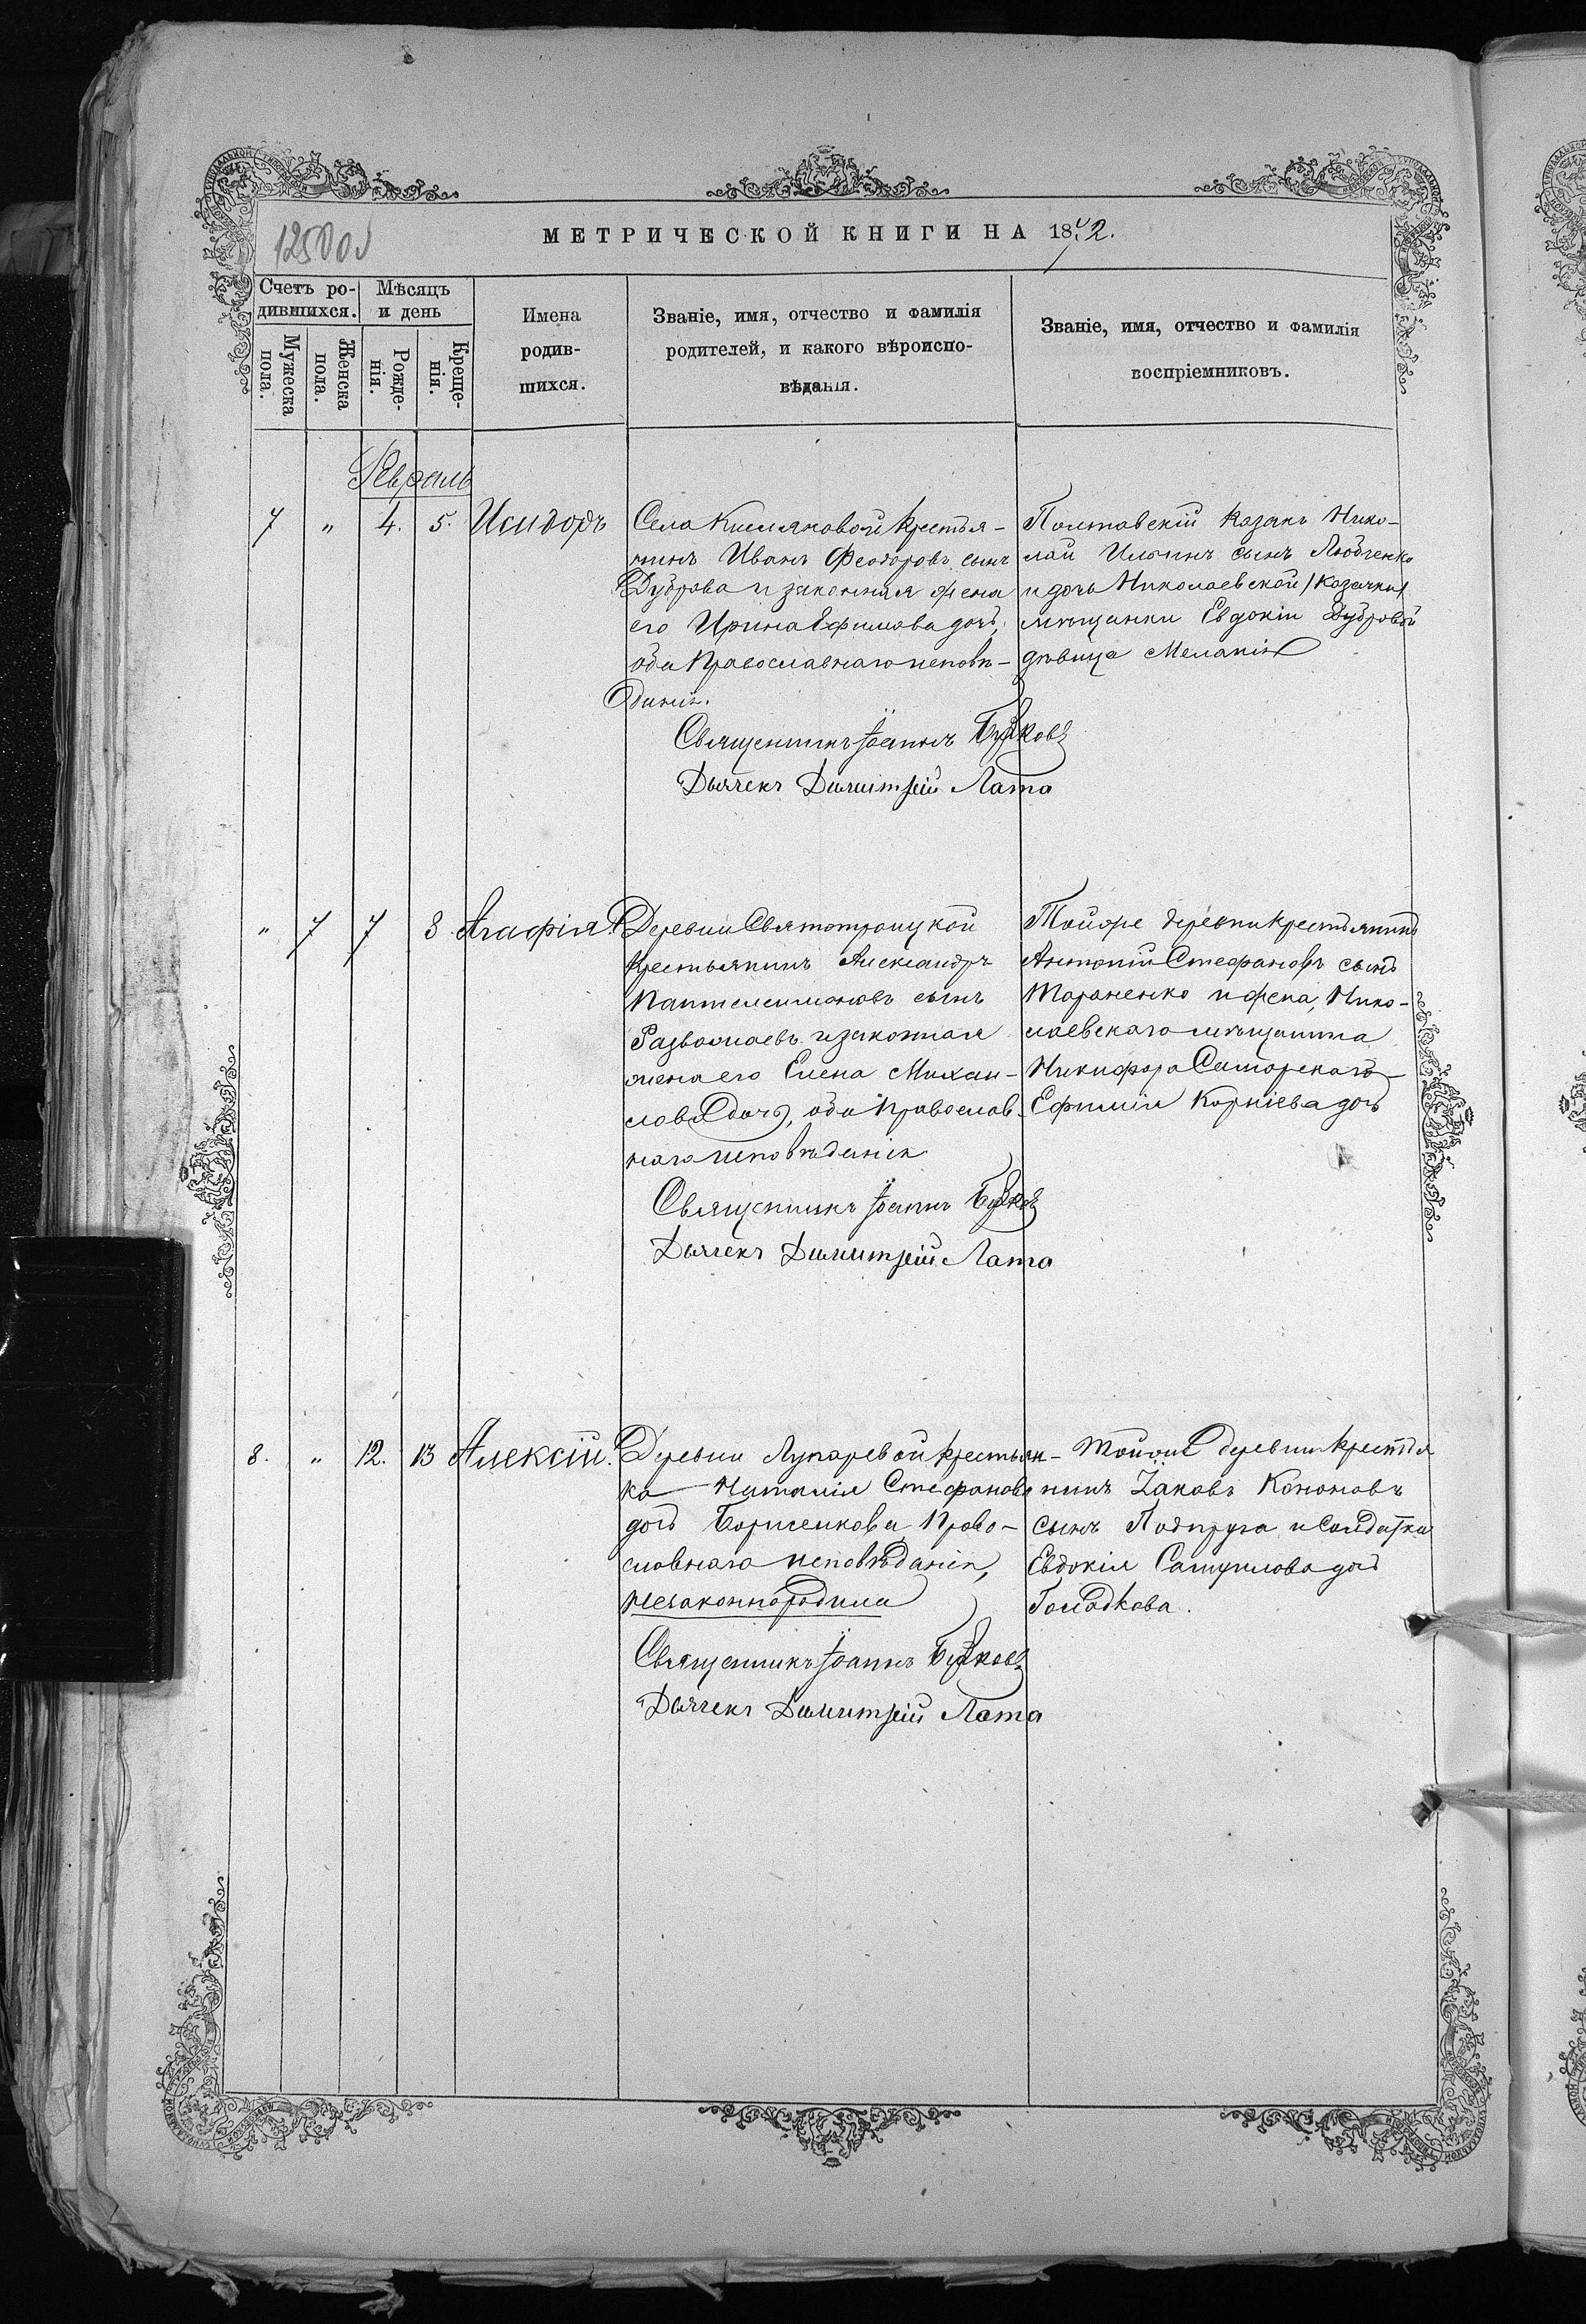 МЕТРИЧЕСКОЙ КНИГИ НА 1872.
Счетъ ро-
дившихся.
Мѣсяцъ
и день
Мужеска
пола.
Женска
пола.
Рожде-
нія.
Креще-
нія.
Имена
родив-
шихся.
Званіе, имя, отчество и фамилія
родителей, и какого вѣроиспо-
вѣданія.
Званіе, имя, отчество и фамилія
воспріемниковъ.
Февраль
7 " 4. 5. Исидоръ
Села Кисляковой крестья-
нинъ Иванъ Феодоровъ сынъ
Дуброва и законная жена
его Ирина Ефимова дочь,
оба Православнаго исповѣ-
данія.
Священникъ Іоаннъ
Дьячекъ Димитрій Лата
Полтавскій казакъ Нико-
лай Ильинъ сынъ Любченко
и дочь Николаевской /казачки/
мѣщанки Евдокіи Дубровой
дѣвица Меланія
" 7 7 8 Агафія.
Деревни Святотроицкой
крестьянинъ Александръ
Пантелеимоновъ сынъ
и законная
жена его Елена Михаи-
лова дочь, оба Православ-
наго исповѣданія
Священникъ Іоаннъ
Дьячекъ Димитрій Лата
Тойже деревни крестьянинъ
Антоній Стефановъ сынъ
Тараненко и жена Нико-
лаевскаго мѣщанина
Никифора
Ефимія Корніева дочь
8. " 12. 13 Алексій.
Деревни Лупаревой крестьян-
ка Наталія Стефанова
дочь Борисенкова, Право-
славнаго исповѣданія,
незаконнородила
Священникъ Іоаннъ
Дьячекъ Димитрій Лата
Тойже деревни крестья
нинъ Іаковъ Кононовъ
сынъ Подпруга и солдатка
Евдокія Самуилова дочь
Гладкова.